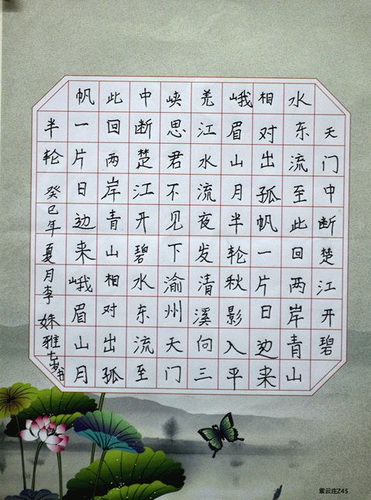 天门中断楚江开碧
水东流至此回两岸青山
相对出孤帆一片日边来
峨眉山月半轮秋影入平
羌江水流夜发清溪向三
峡思君不见下渝州天门
中断楚江开碧水东流至
此回两岸青山相对出孤
帆一片日边来峨眉山月
半轮 癸巳年夏月李姝雅岁书
云庄Z45